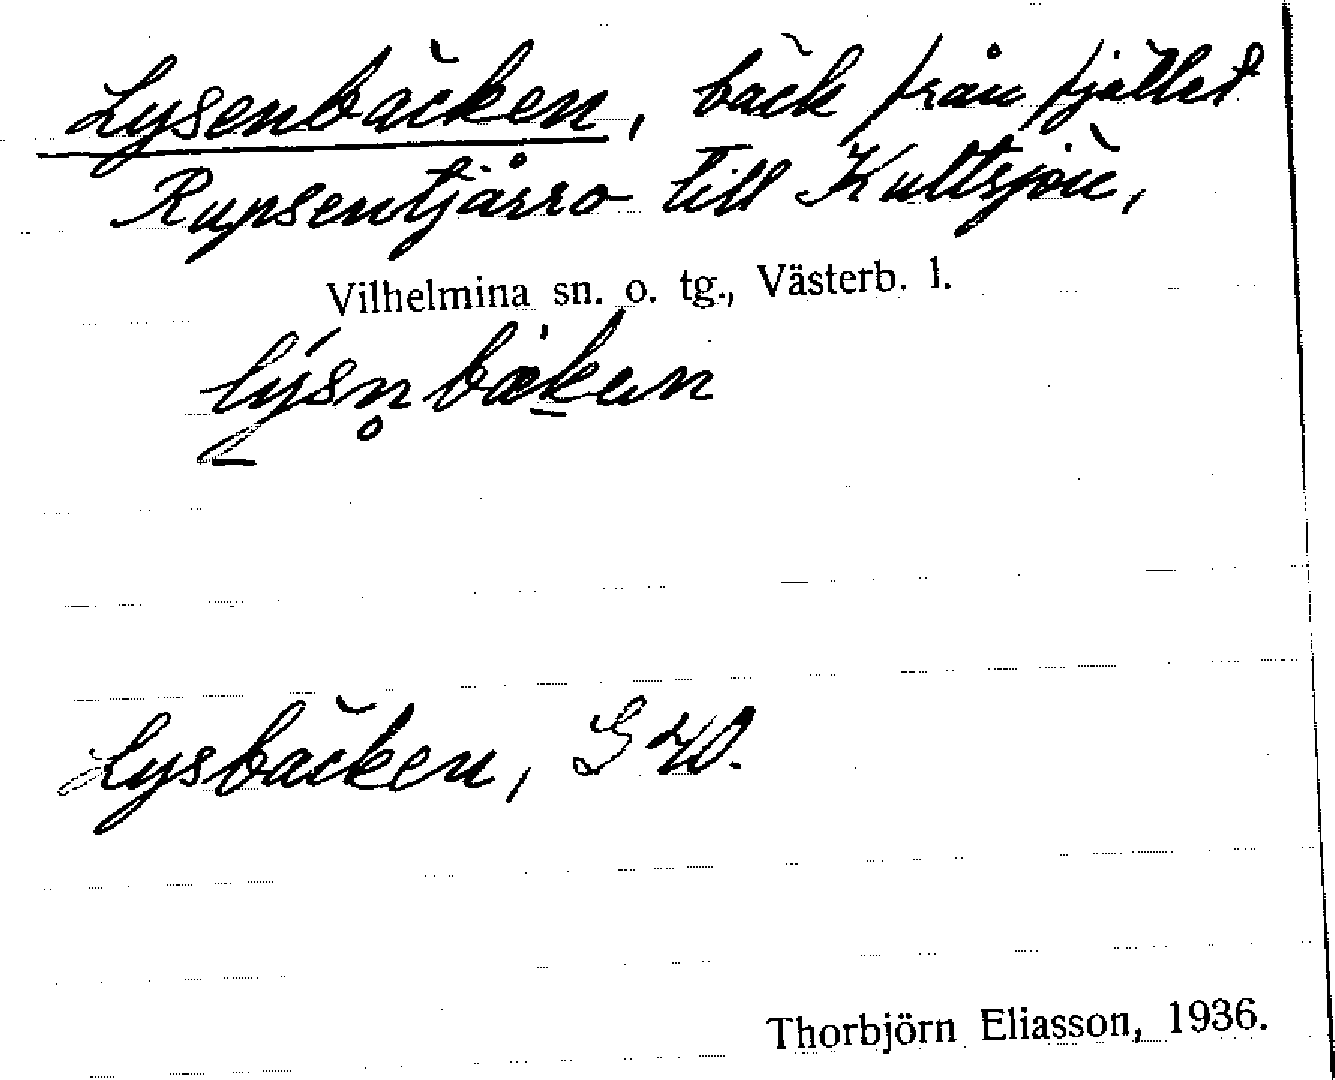 Lysenbäcken, bäck från fjället
Rupsentjårro till Kultsjön,
Vilhelmina sn. o. tg., Västerb. l.
lýsn̥bækən
Lysbäcken, GW.
Thorbjörn Eliasson, 1936.